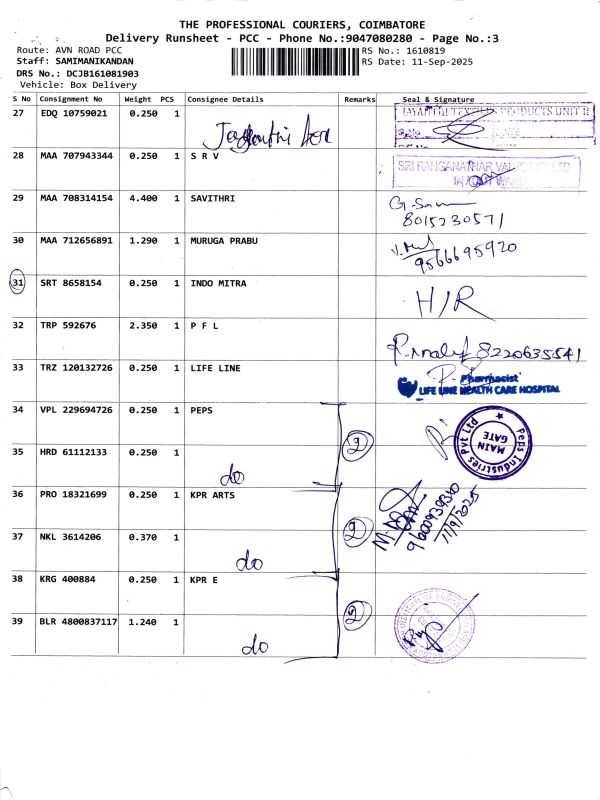 THE PROFESSIONAL COURIERS, COIMBATORE
Delivery Runsheet - PCC - Phone No.:9047080280 - Page No.:3
Route: AVN ROAD PCC RS No.: 1610819
Staff: SAMIMANIKANDAN RS Date: 11-Sep-2025
DRS No.: DCJB161081903
Vehicle: Box Delivery
S No Consignment No Weight PCS Consignee Details Remarks Seal & Signature
27 EDQ 10759021 0.250 1
28 MAA 707943344 0.250 1 S R V
29 MAA 708314154 4.400 1 SAVITHRI
8015230571
30 MAA 712656891 1.290 1 MURUGA PRABU
9566695920
31 SRT 8658154 0.250 1 INDO MITRA H/R
32 TRP 592676 2.350 1 P F L 8220635541
33 TRZ 120132726 0.250 1 LIFE LINE Pharmacist
LIFE LINE HEALTH CARE HOSPITAL
34 VPL 229694726 0.250 1 PEPS 2 Peps Industries Pvt Ltd
MAIN
GATE
35 HRD 61112133 0.250 1 do
36 PRO 18321699 0.250 1 KPR ARTS 2
9600939360
11/9/2025
37 NKL 3614206 0.370 1 do
38 KRG 400884 0.250 1 KPR E
39 BLR 4800837117 1.240 1 do